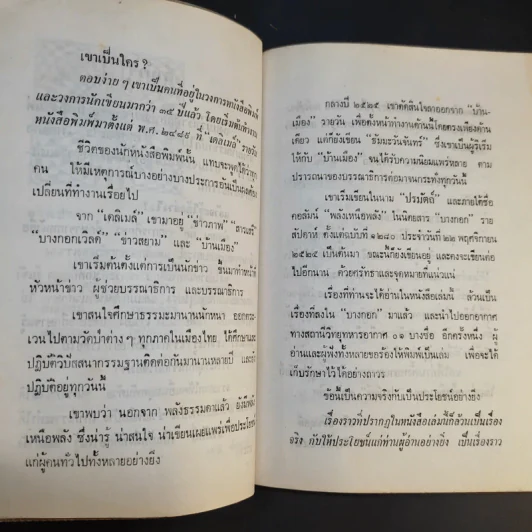 เขาเป็นใคร ?
ตอบง่าย ๆ เขาเป็นคนที่อยู่ในวงการหนังสือพิมพ์
และวงการนักเขียนมากว่า ๓๕ ปีแล้ว โดยเริ่มต้นทำงาน
หนังสือพิมพ์มาตั้งแต่ พ.ศ. ๒๔๘๙ ที่ "เดลิเมล์" รายวัน
ชีวิตของนักหนังสือพิมพ์นั้น แทบจะพูดได้ว่าทุก
คน ให้มีเหตุการณ์บางอย่างบางประการอันเป็นผลต้อง
เปลี่ยนที่ทำงานเรื่อยไป
จาก "เดลิเมล์" เขามาอยู่ "ข่าวภาพ" "สารเสรี"
"บางกอกเวิลด์" "ข่าวสยาม" และ "บ้านเมือง"
เขาเริ่มต้นตั้งแต่การเป็นนักข่าว ขึ้นมาทำหน้าที่
หัวหน้าข่าว ผู้ช่วยบรรณาธิการ และบรรณาธิการ
เขาสนใจศึกษาธรรมะมานานนักหนา ออกตระ-
เวนไปตามวัดป่าต่าง ๆ ทุกภาคในเมืองไทย ได้ศึกษาและ
ปฏิบัติวิปัสสนากรรมฐานติดต่อกันมานานหลายปี และยัง
ปฏิบัติอยู่ทุกวันนี้
เขาพบว่า นอกจาก พลังธรรมดาแล้ว ยังมีพลัง
เหนือพลัง ซึ่งน่ารู้ น่าสนใจ น่าเขียนเผยแพร่เพื่อประโยชน์
แก่ผู้คนทั่วไปทั้งหลายอย่างยิ่ง
กลางปี ๒๕๒๕ เขาตัดสินใจลาออกจาก "บ้าน-
เมือง" รายวัน เพื่อตั้งหน้าทำงานด้านนี้โดยตรงเพียงด้าน
เดียว แต่ก็ยังเขียน "ธัมมะวันจันทร์" ซึ่งเขาเป็นผู้ริเริ่ม
ให้กับ "บ้านเมือง" จนได้รับความนิยมแพร่หลาย ตาม
ปรารถนาของบรรณาธิการต่อมาจนกระทั่งทุกวันนี้
เขาเริ่มเขียนในนาม "ปรมัตถ์" และภายใต้ชื่อ
คอลัมน์ "พลังเหนือพลัง" ในนิตยสาร "บางกอก" ราย
สัปดาห์ ตั้งแต่ฉบับที่ ๑๒๘๐ ประจำวันที่ ๒๒ พฤศจิกายน
๒๕๒๕ เป็นต้นมา ขณะนี้ก็ยังเขียนอยู่ และคงจะเขียนต่อ
ไปอีกนาน ด้วยศรัทธาและจุดหมายที่แน่วแน่
เรื่องที่ท่านจะได้อ่านในหนังสือเล่มนี้ ล้วนเป็น
เรื่องที่ลงใน "บางกอก" มาแล้ว และนำไปออกอากาศ
ทางสถานีวิทยุทหารอากาศ ๐๑ บางซื่อ อีกครั้งหนึ่ง ผู้
อ่านและผู้ฟังทั้งหลายขอร้องให้พิมพ์เป็นเล่ม เพื่อจะได้
เก็บรักษาไว้ได้อย่างถาวร
ข้อนี้เป็นความจริงกับเป็นประโยชน์อย่างยิ่ง
เรื่องราวที่ปรากฏในหนังสือเล่มนี้ก็ล้วนเป็นเรื่อง
จริง กับให้ประโยชน์แก่ท่านผู้อ่านอย่างยิ่ง เป็นเรื่องราว